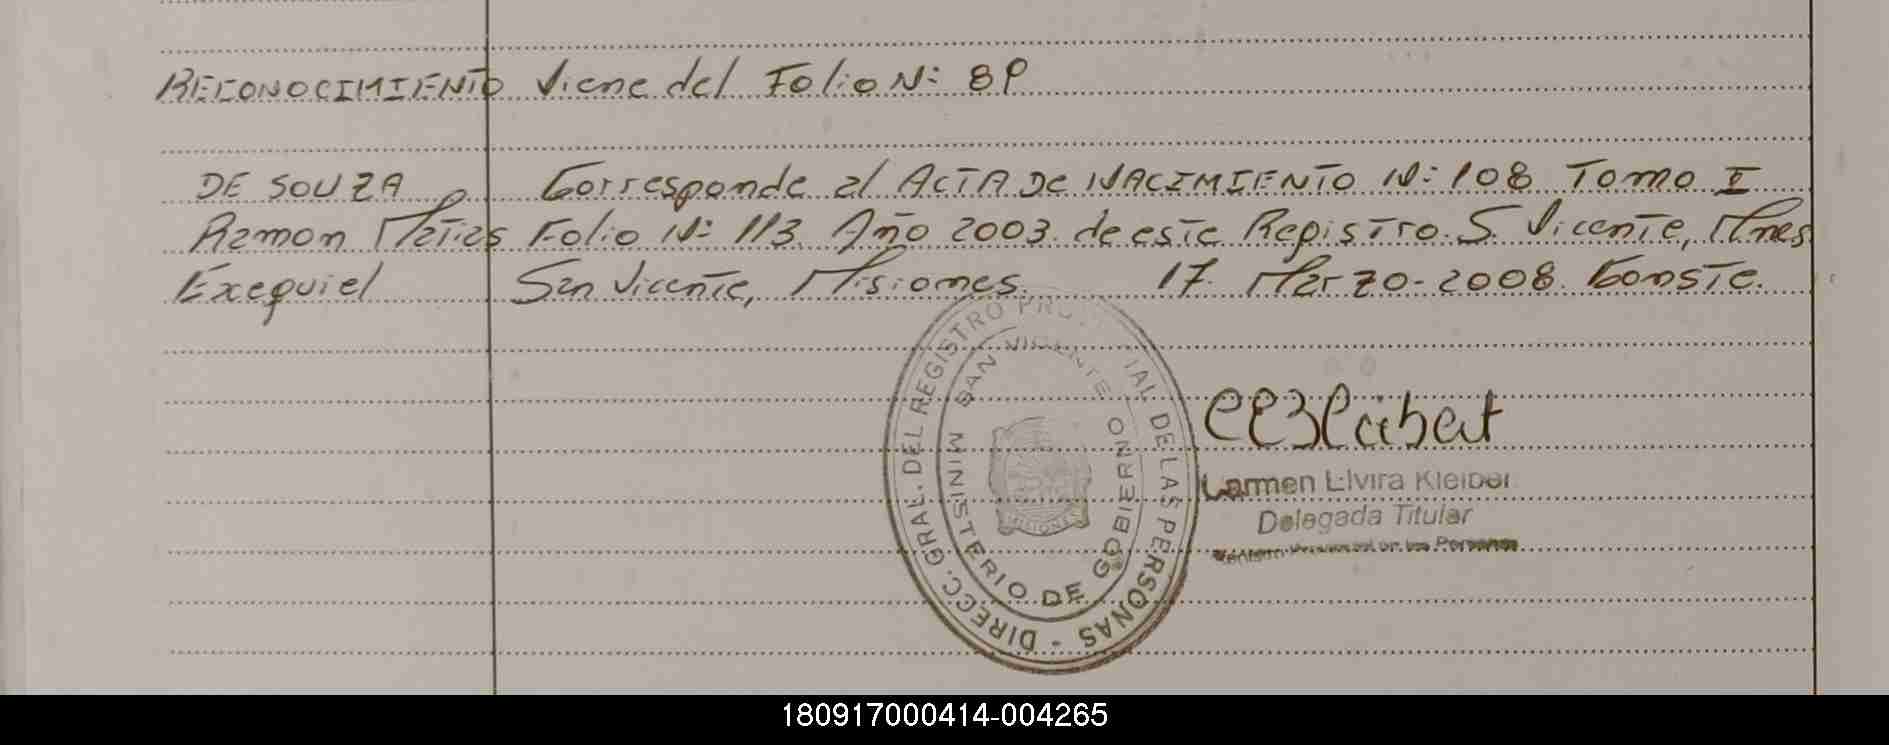 RECONOCIMIENTO Viene del Folio Nº 89
DE SOUZA Corresponde al ACTA De NACIMIENTO Nº 108 Tomo II
Ramon Matias Folio Nº 113 Año 2003 de este Registro. S. Vicente, Mnes
Exequiel San Vicente, Misiones. 17. Marzo-2008. Conste.
DIRECC. GRAL. DEL REGISTRO PROVINCIAL DE LAS PERSONAS -
SAN VICENTE
MINISTERIO DE GOBIERNO
MISIONES
Carmen Elvira Kleiber
Delegada Titular
Personas
180917000414-004265